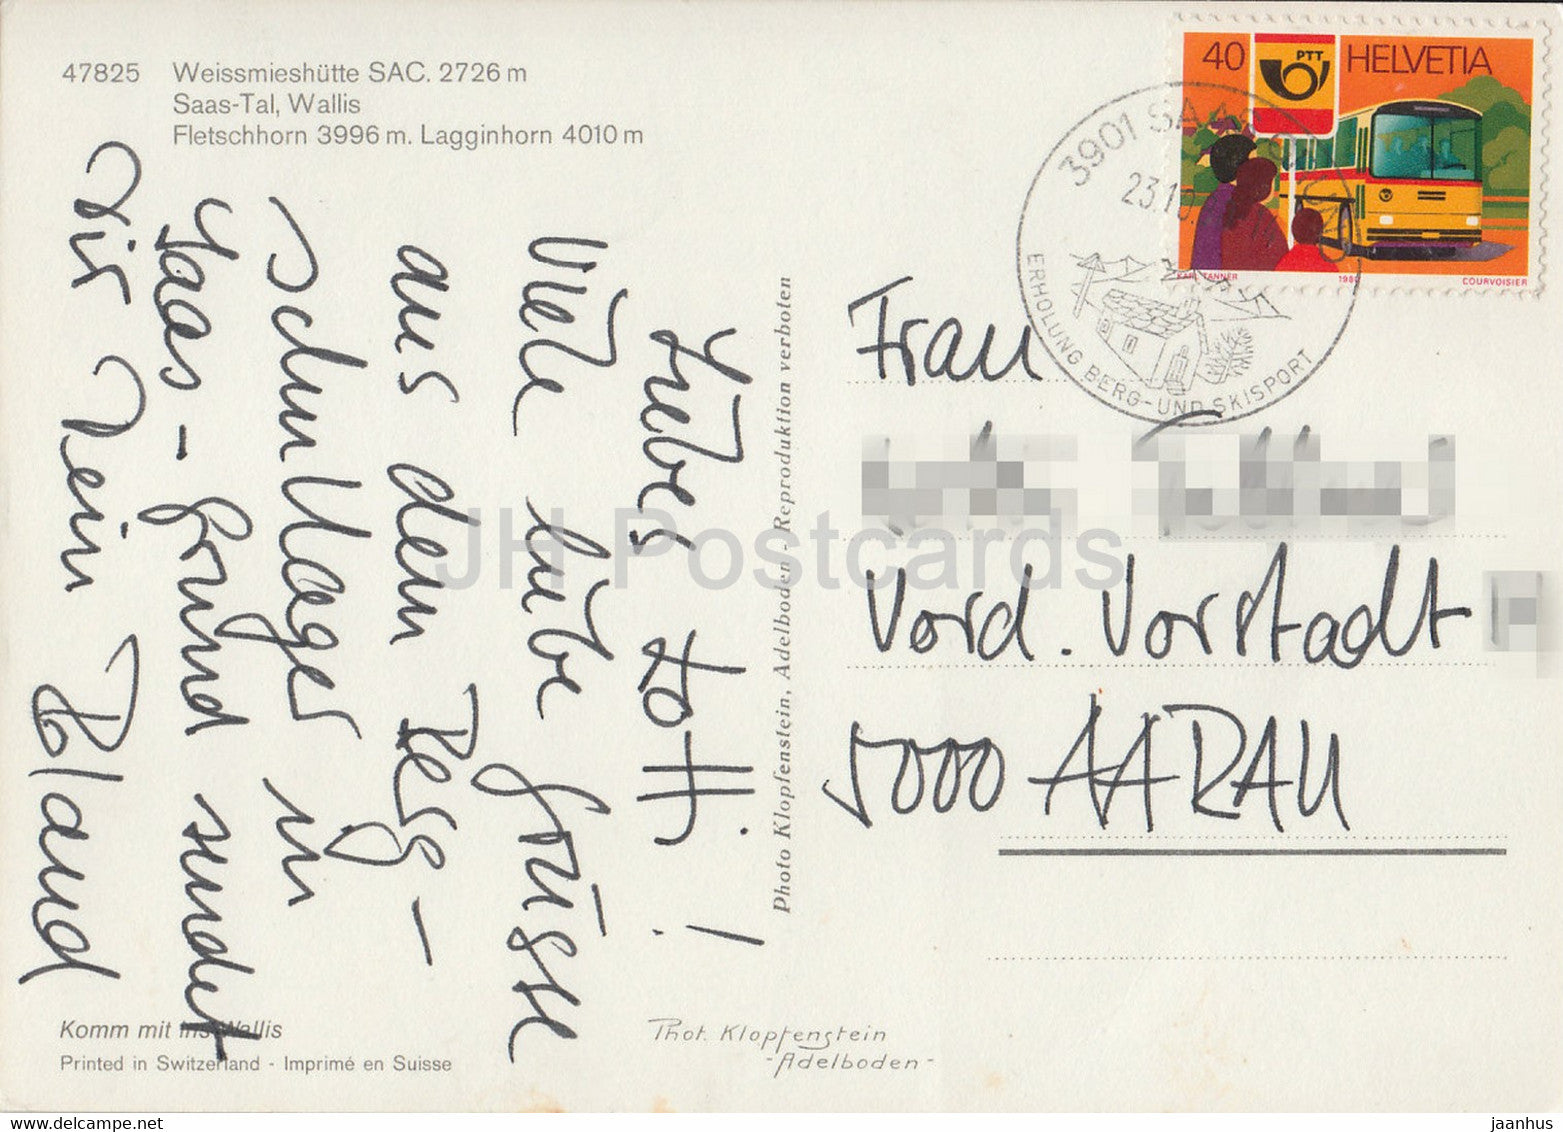 47825 Weissmieshütte SAC. 2726 m
Saas-Tal, Wallis
Fletschhorn 3996 m. Lagginhorn 4010 m
Liebes Totti!
Viele liebe Grüsse
aus dem Berg-
schullager in
Saas-Grund sendet
Dir Dein Roland
Komm mit ins Wallis
Printed in Switzerland - Imprimé en Suisse
Photo Klopfenstein, Adelboden - Reproduktion verboten
Phot. Klopfenstein
- Adelboden -
40 PTT HELVETIA
KARL TANNER 1980 COURVOISIER
3901 SAAS
23.10.
ERHOLUNG BERG-UND SKISPORT
Frau
Vord. Vorstadt
5000 AARAU
JH Postcards
delcampe.net
jaanhus